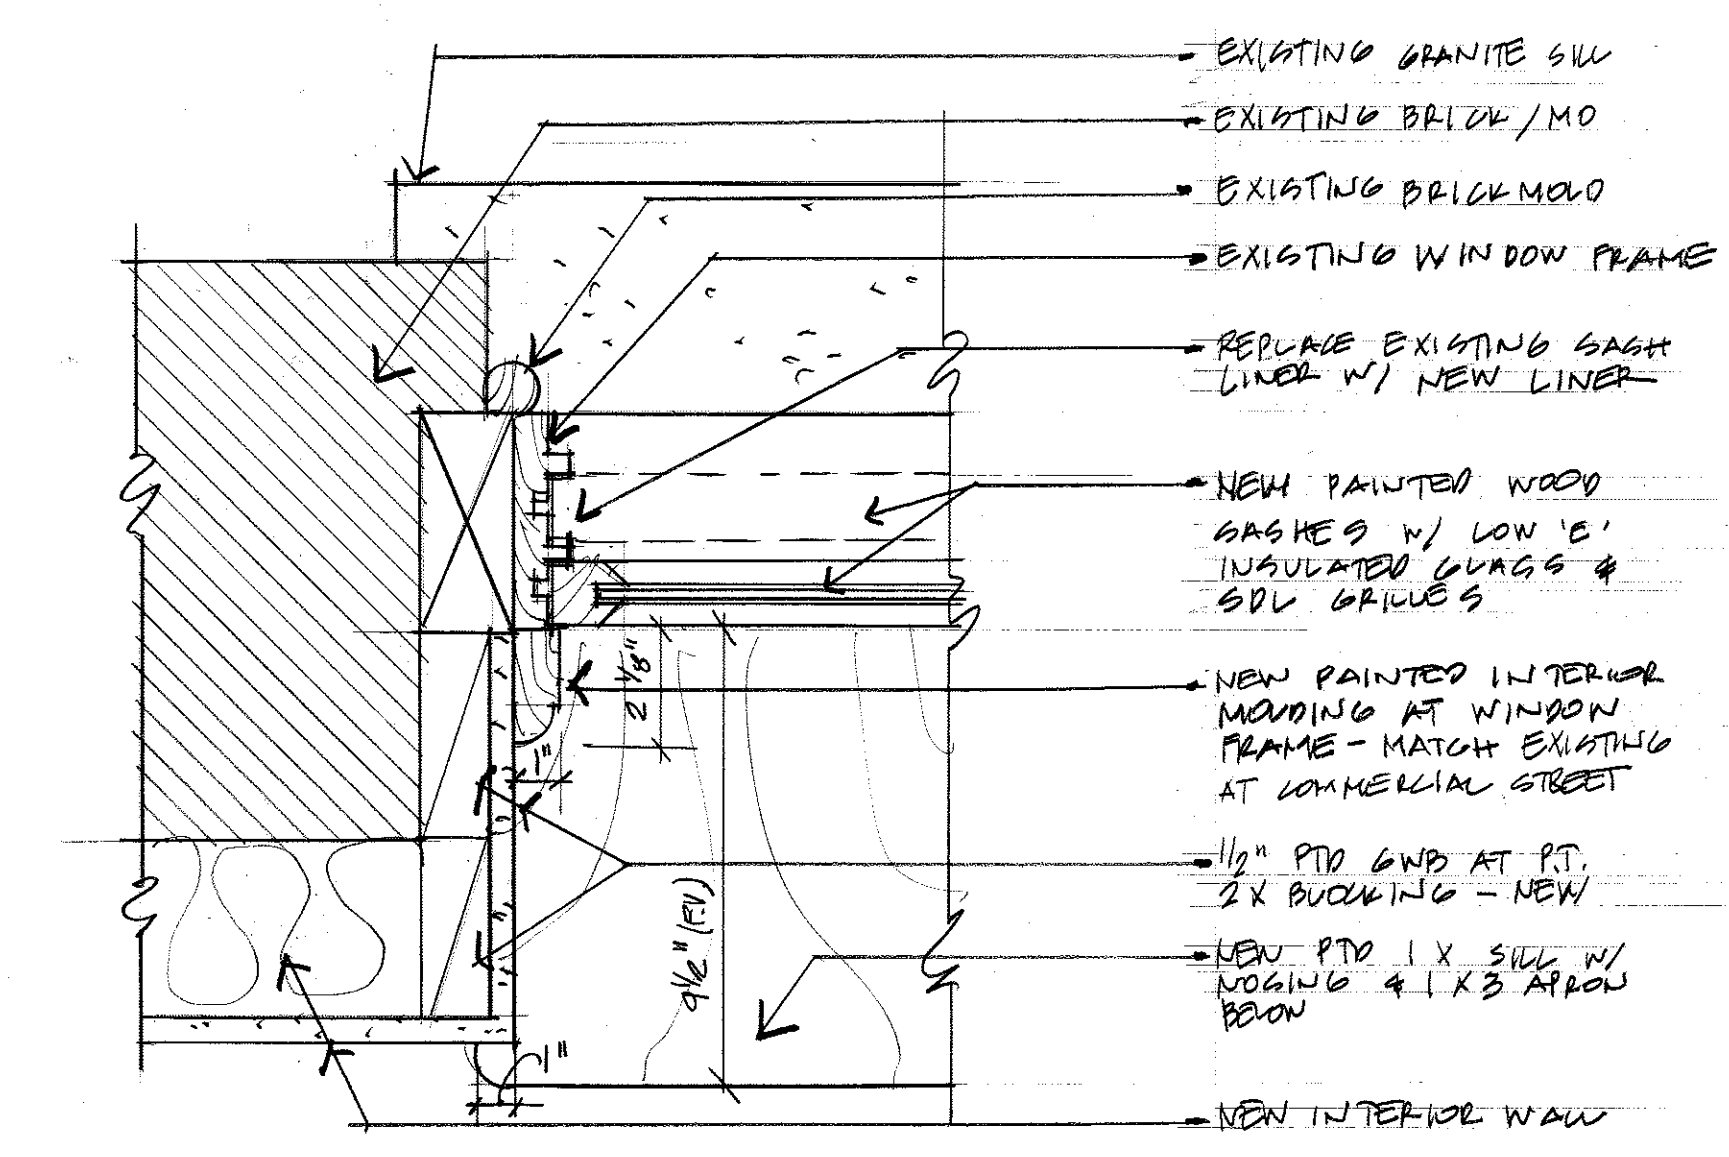 EXISTING GRANITE SILL
EXISTING BRICK/MO
EXISTING BRICKMOLD
EXISTING WINDOW FRAME
REPLACE EXISTING SASH
LINER W/ NEW LINER
NEW PAINTED WOOD
SASHES W/ LOW 'E'
INSULATED GLASS &
SDL GRILLES
NEW PAINTED INTERIOR
MOLDING AT WINDOW
FRAME - MATCH EXISTING
AT COMMERCIAL STREET
1/2" PTD GWB AT P.T.
2X BLOCKING - NEW
NEW PTD 1 X SILL W/
NOSING & 1 X 3 APRON
BELOW
NEW INTERIOR WALL
2 1/8"
1"
9 1/2" (F.V)
1"